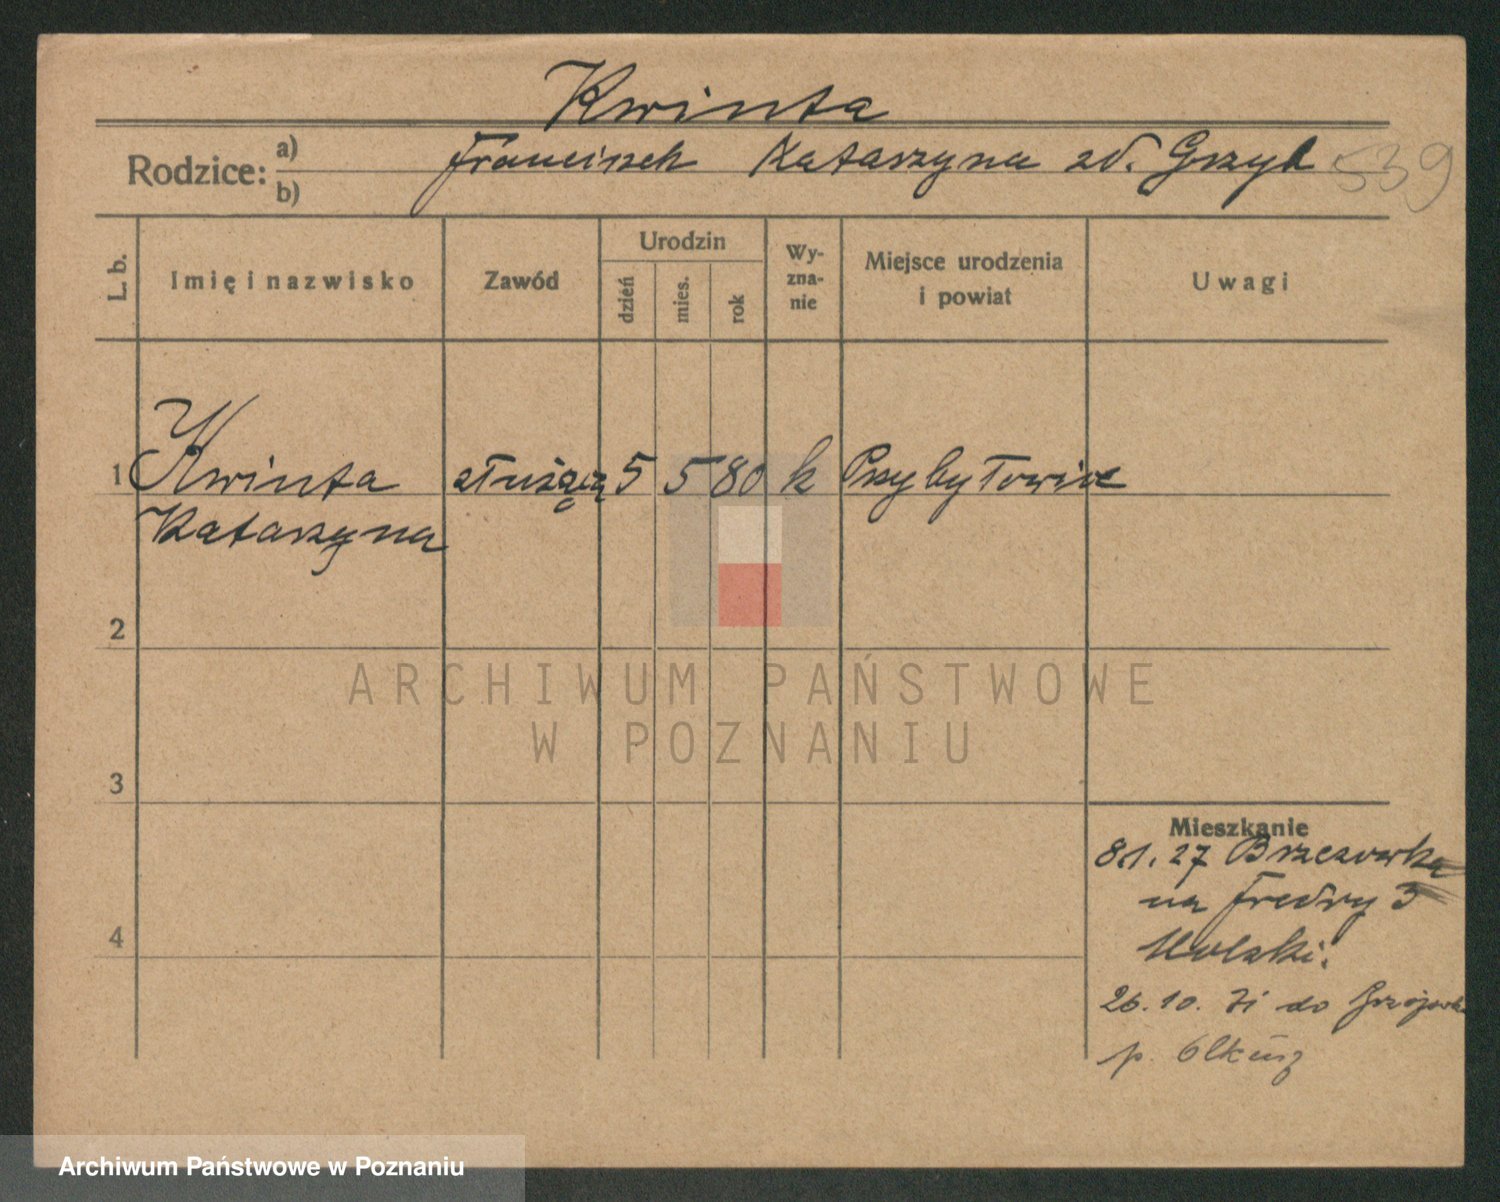 Kwinta
Rodzice: a) Franciszek Katarzyna zd. Grzyb 539
b)
L. b. Imię i nazwisko Zawód Urodzin dzień mies. rok Wyznanie Miejsce urodzenia i powiat Uwagi
1 Kwinta służąca 5 5 80 k Przybyłowice
Katarzyna
2
ARCHIWUM PAŃSTWOWE
W POZNANIU
3
Mieszkanie
8.1.27
na Fredry 3
4
Wolski.
26.10. 31 do
p. Olkusz
Archiwum Państwowe w Poznaniu